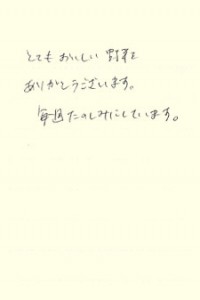 とても おいしい 野菜を
ありがとうございます。
毎週たのしみにしています。